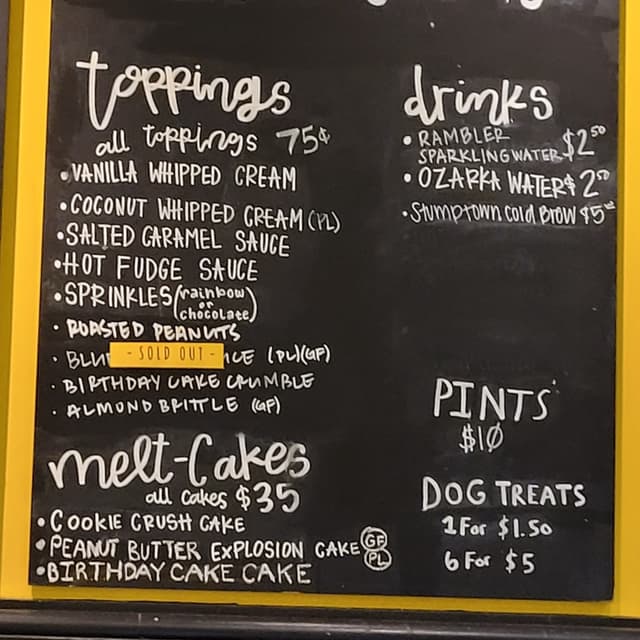 toppings
all toppings 75¢
• VANILLA WHIPPED CREAM
• COCONUT WHIPPED CREAM (PL)
• SALTED CARAMEL SAUCE
• HOT FUDGE SAUCE
• SPRINKLES (rainbow
or
chocolate)
• ROASTED PEANUTS
- SOLD OUT -
(PL)(GF)
• BIRTHDAY CAKE CRUMBLE
• ALMOND BRITTLE (GF)
melt-Cakes
all Cakes $35
• COOKIE CRUSH CAKE
• PEANUT BUTTER EXPLOSION CAKE GF PL
• BIRTHDAY CAKE CAKE
drinks
• RAMBLER
SPARKLING WATER $2.50
• OZARKA WATER $2.50
• Stumptown Cold Brow $5
PINTS
$10
DOG TREATS
1 For $1.50
6 For $5